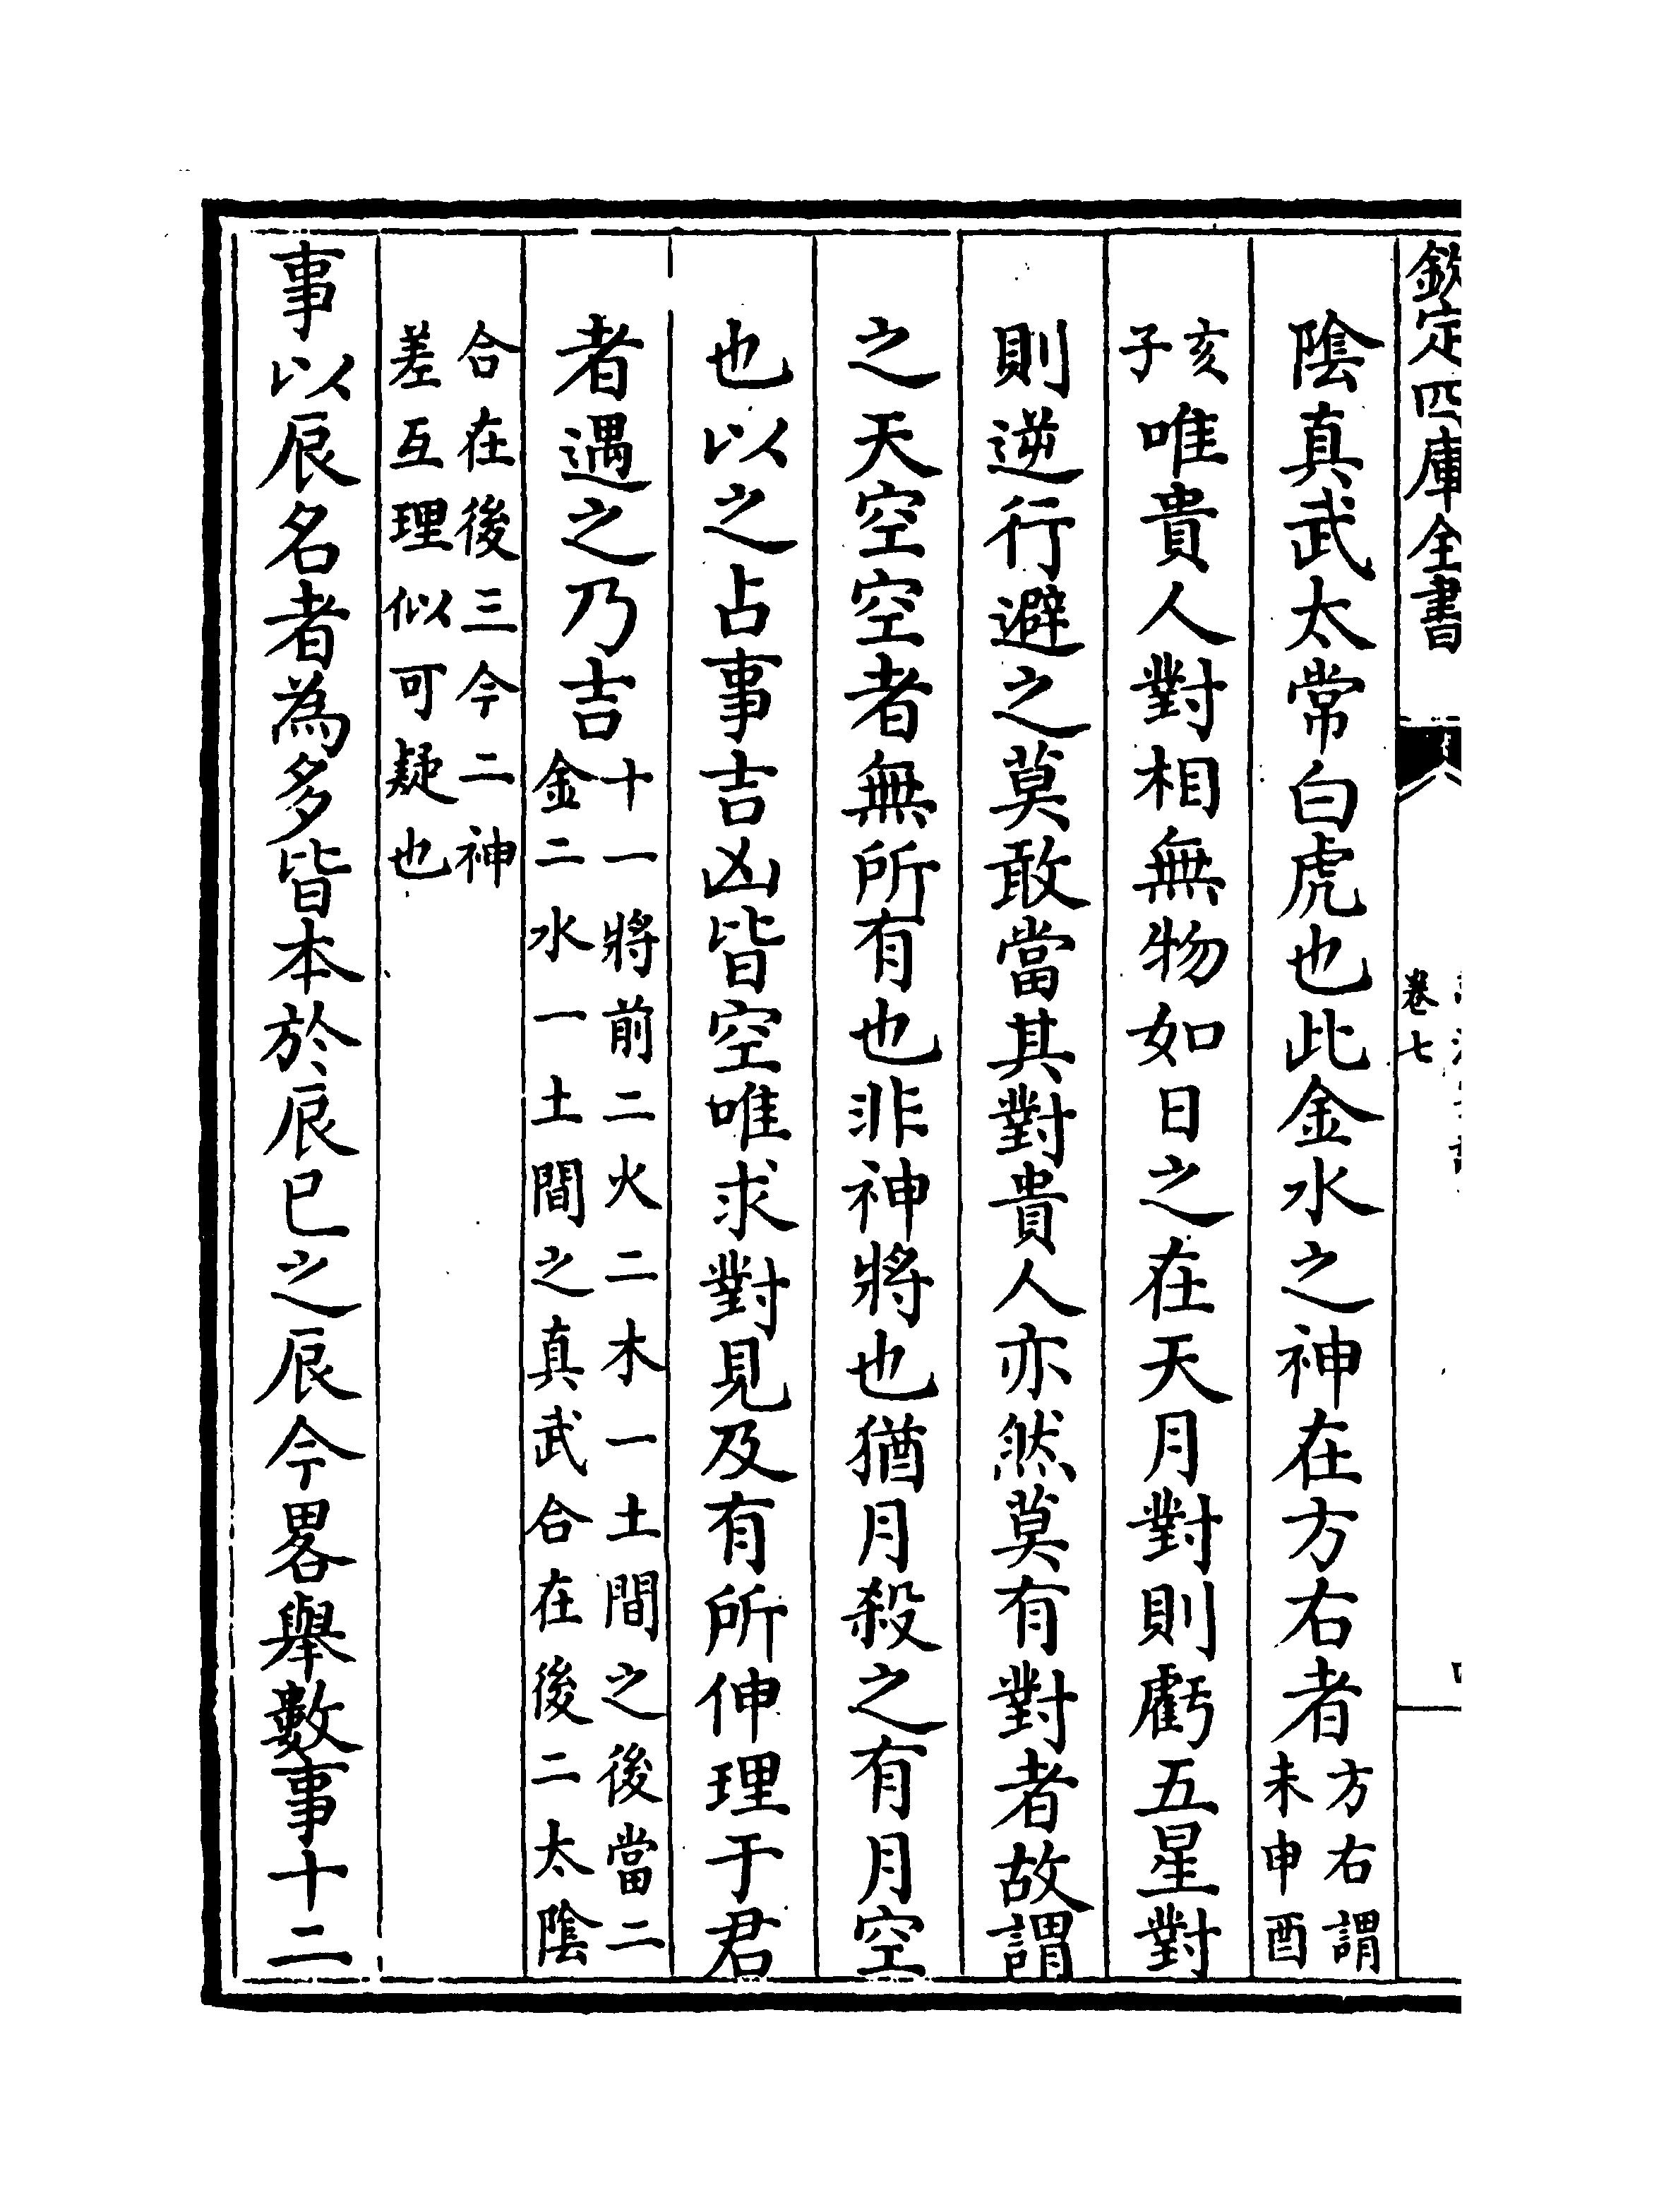 欽定四庫全書
卷七
陰真武太常白虎也此金水之神在方右者方右謂未申酉
亥子唯貴人對相無物如日之在天月對則虧五星對
則逆行避之莫敢當其對貴人亦然莫有對者故謂
之天空空者無所有也非神將也猶月殺之有月空
也以之占事吉凶皆空唯求對見及有所伸理于君
者遇之乃吉十一將前二火二木一土間之後當二金二水一土間之真武合在後二太陰
合在後三今二神差互理似可疑也
事以辰名者為多皆本於辰巳之辰今畧舉數事十二